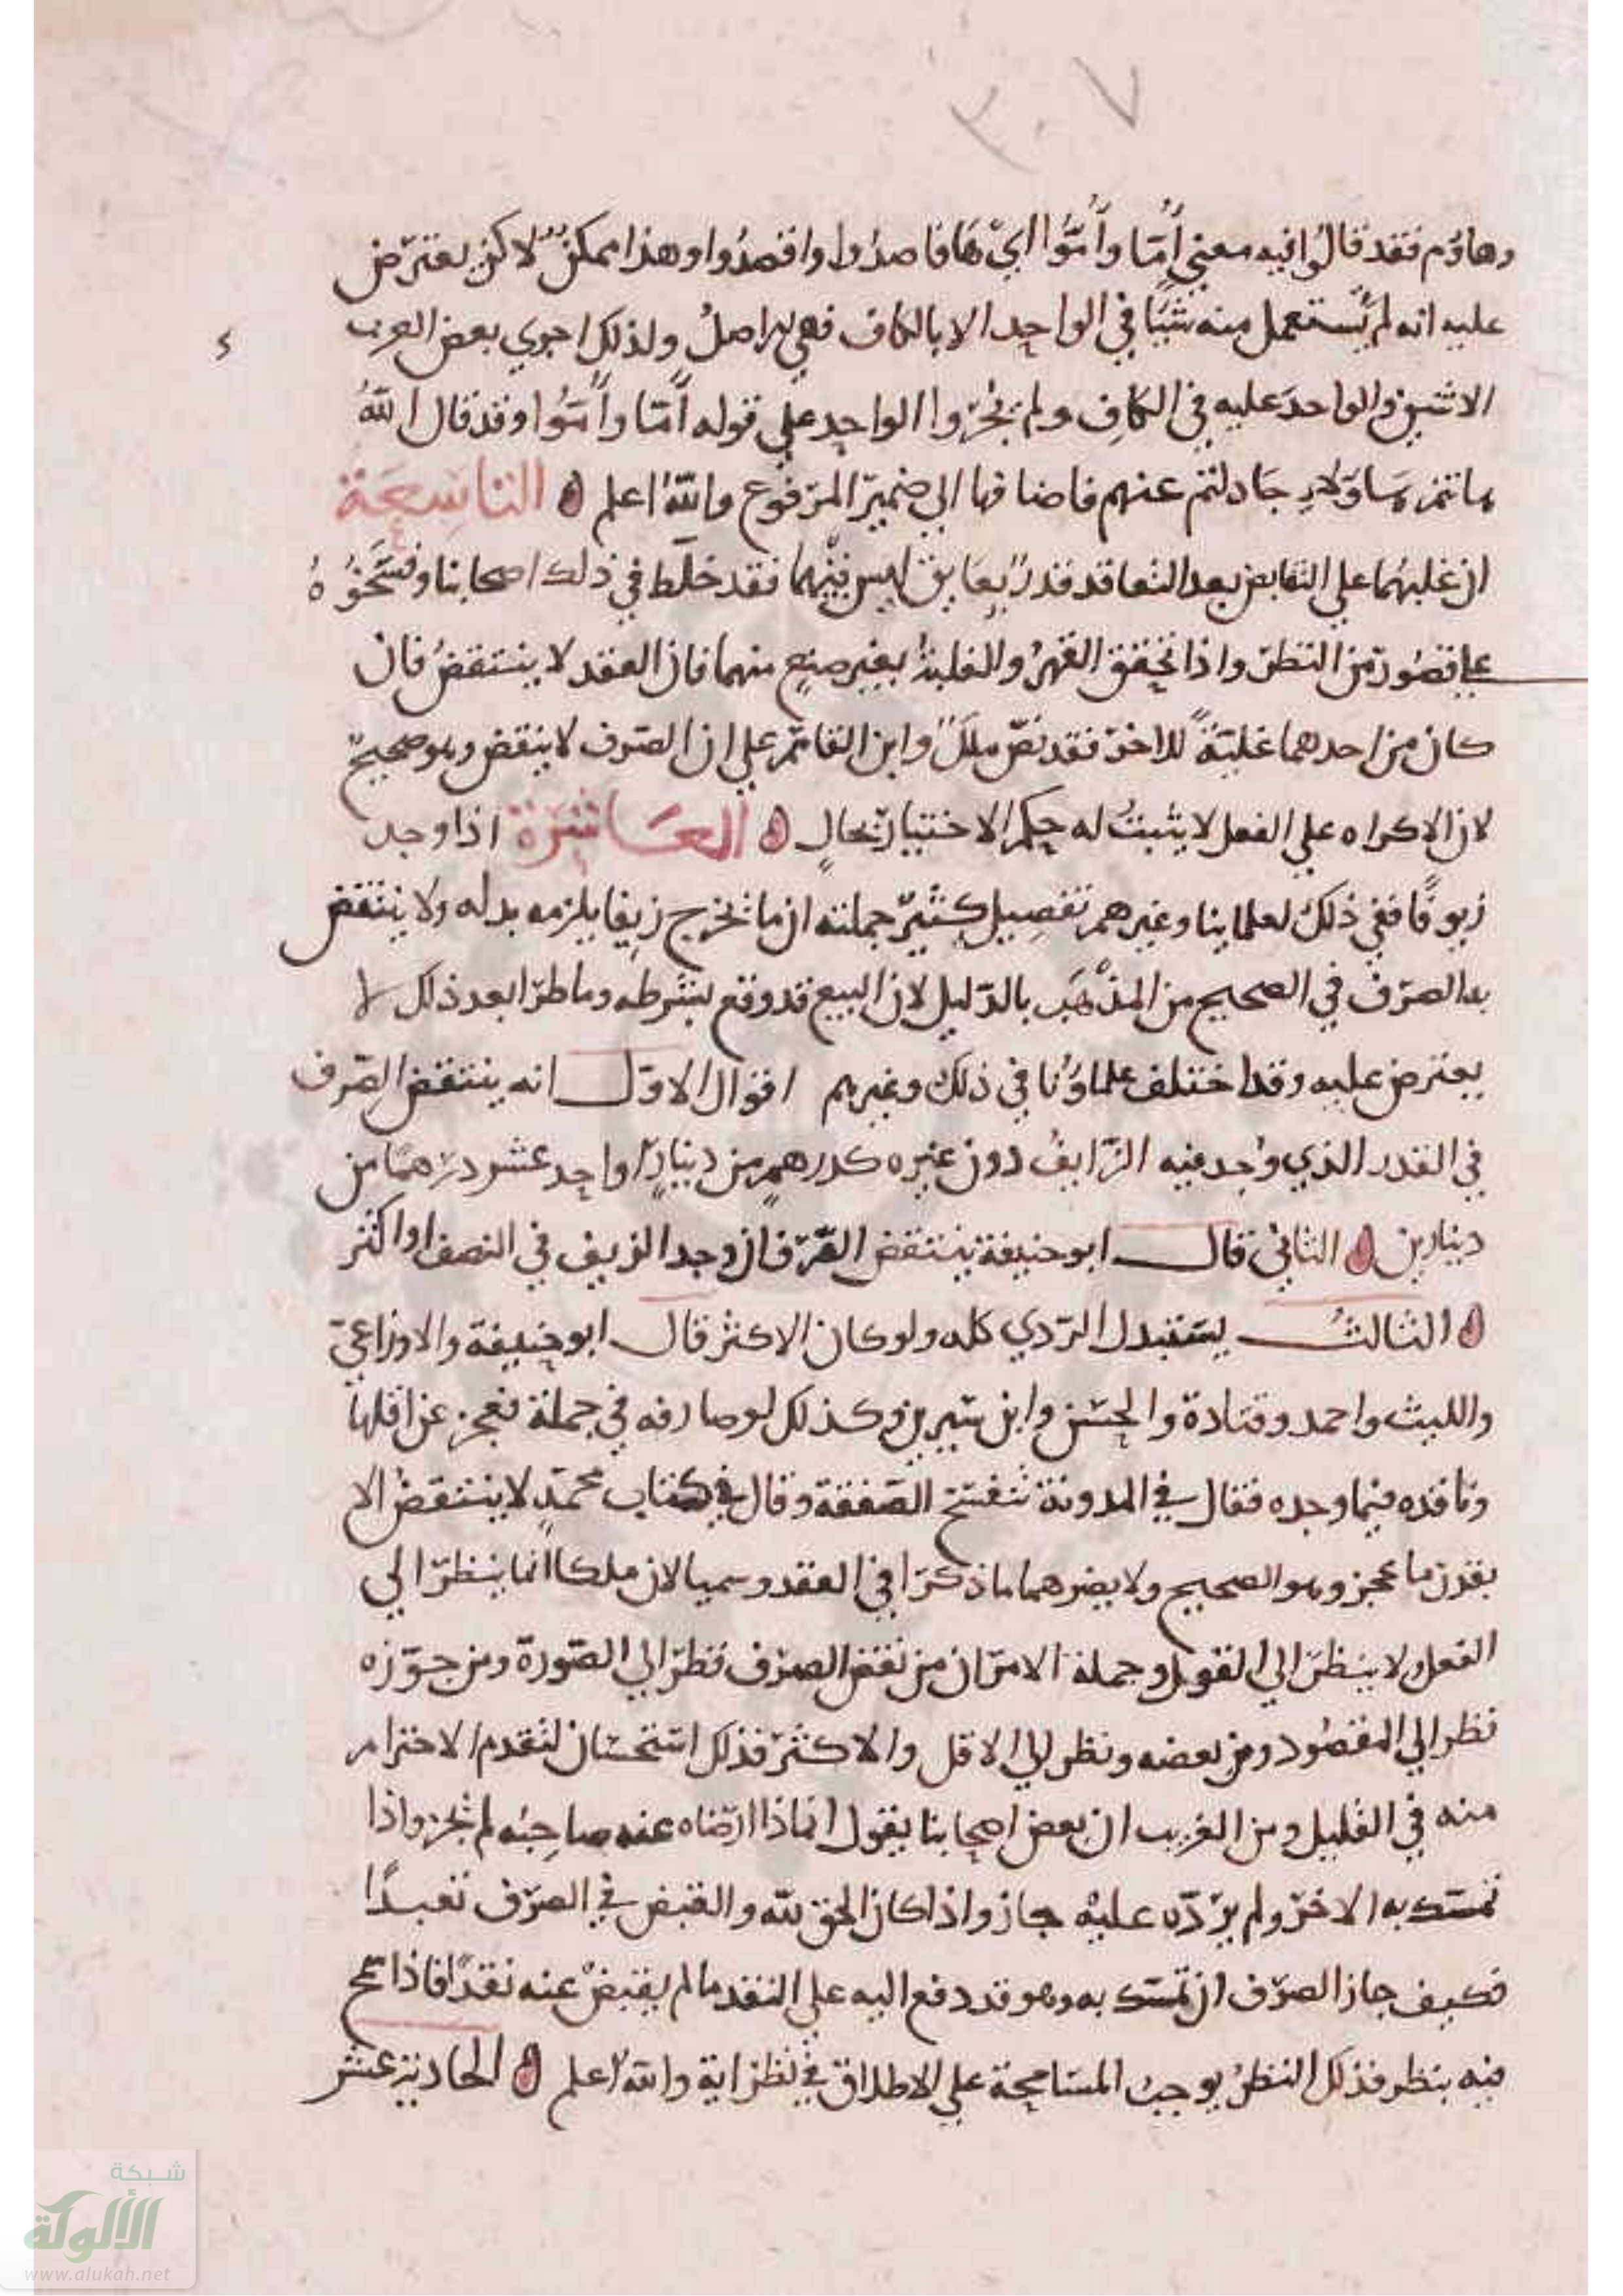 ٣٠٧
وهاؤم فقد قالوا فيه معني أُمَّا وأُمُّوا اي هَا فاصدُوا واقصدُوا وهذا ممكن لاكن يعترض
عليه انه لم يُستعمل منه شيًا في الواحد الا بالكاف فهي له اصلُ ولذلك اجري بعض العرب
الاثنين والواحدَ عليه في الكافِ ولم يُجرُوا الواحد علي قوله أُمَّا وأُمُّوا وقد قال اللّهُ
هانتم هَاوَلاءِ جَادلتم عنهم فاضافها الي ضمير المرفوع واللّهُ اعلم التاسِعَة
ان غلبهُما علي التقابض بعد التعاقد قدرٌ بعَايق ليس منهما فقد خلّط في ذلك اصحابنا ونسَخوُهُ
علي قصُور من النظر واذا تحقق القهرُ والغلبةُ بغير صنعٍ منهما فان العقد لا ينتقضُ فان
كان من احدهما غلبَةً للاخر فقد نصّ ملك وابن القاسم علي ان الصرف لا ينتقض وهو صحيح
لان الاكراه علي الفعل لا يثبتُ له حكم الاختيار بحالٍ العَاشرَة اذا وجد
زيوفًا ففي ذلك لعلماينا وغيرهم تفصِيل كثير جملته ان ما خرج زيفا يلزمه بدله ولا ينتقض
به الصرف في الصحيح من المذهَب بالدّليل لان البيع قد وقع بشرطه وما طرا بعد ذلك لا
يعترض عليه وقد اختلف علماؤنا في ذلك وغيرهم اقوال الاوّل انه ينتقض الصرف
في القدر الذي وُجد فيه الزايفُ دون غيره كدرهمٍ من دينارٍ او احد عشر درهمًا من
دينارين الثاني قال ابو حنيفة ينتقض الصّرف ان وجد الزيف في النصف او اكثر
الثالثُ يستبدل الردي كله ولو كان الاكثر قال ابو حنيفة والاوزاعي
والليث واحمد وقتادة والحسَن وابن سيرين وكذلك لو صارفه في جملة فعجز عن اقلها
وناقده فيما وجده فقال في المدونة تنفسخ الصّفقة وقال في كتاب محمّدٍ لا ينتقضُ الا
بقدر ما عجز وهو الصحيح ولا يضرهما ما ذكرا في العقد وسميا لان ملكا انما ينظر الي
الفعل ولا ينظر الي القول وجملة الامر ان من نقض الصرف نظر الي الصّورة ومن جوّزه
نظر الي المقصُود ومن بعضه ونظر الي الاقل والاكثر فذلك استحسَان لتقدم الاحترام
منه في القليل ومن الغريب ان بعض اصحابنا يقول انما اذا ارضاه عنه صاحِبُه لم يجز واذا
تمسّك به الاخر ولم يردّه عليه جاز واذا كان الحق للّه والقبض في الصّرف تعبدًا
فكيف جاز الصرّف ان تمسّك به وهو قد دفع اليه علي النقد ما لم يقبضْ عنه نقدًا فاذا سمح
فيه بنظر فذلك النظرُ يوجبُ المسَامحة علي الاطلاق في نظرايه واللّه اعلم الحادية عشر
شبكة
الألوكة
www.alukah.net